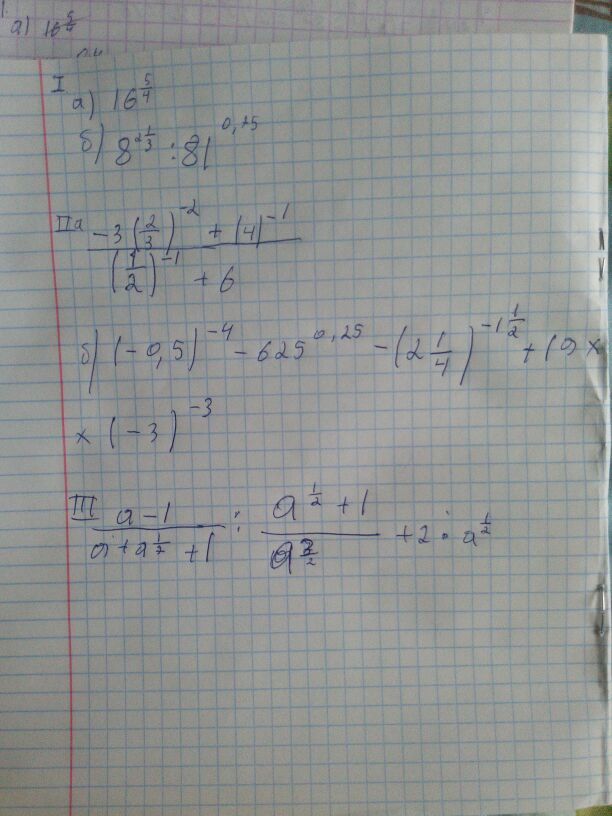 а) 16^(5/4)
I
а) 16^(5/4)
б) 8^(2 1/3) : 81^(0,25)
IIа (-3(2/3)^(-2) + (4)^(-1)) / ((1/2)^(-1) + 6)
б) (-0,5)^(-4) - 625^(0,25) - (2 1/4)^(-1 1/2) + 19 ×
× (-3)^(-3)
III (a-1)/(a+a^(1/2)+1) : (a^(1/2)+1)/(a^(3/2)) + 2 · a^(1/2)